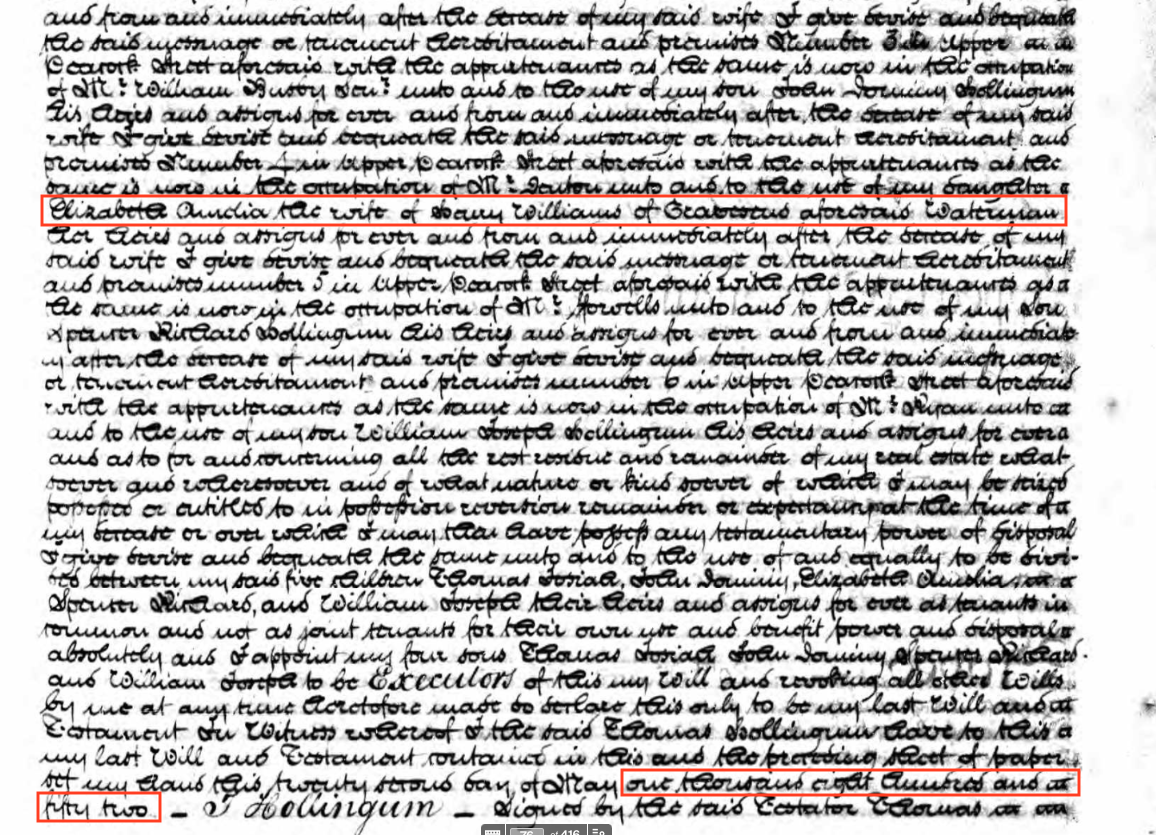 and from and immediately after the decease of my said wife I give devise and bequeath
the said messuage or tenement hereditament and premises Number 3 in Upper
Peacock Street aforesaid with the appurtenances as the same is now in the occupation
of Mr. William Senr. unto and to the use of my son John Dominy Hollingum
his heirs and assigns for ever and from and immediately after the decease of my said
wife I give devise and bequeath the said messuage or tenement hereditament and
premises Number 4 in Upper Peacock Street aforesaid with the appurtenances as the
same is now in the occupation of Mr. unto and to the use of my daughter
Elizabeth Amelia the wife of Henry Williams of Gravesend aforesaid Waterman
her heirs and assigns for ever and from and immediately after the decease of my
said wife I give devise and bequeath the said messuage or tenement hereditament
and premises number 5 in Upper Peacock Street aforesaid with the appurtenances as
the same is now in the occupation of Mr. unto and to the use of my Son
Spencer Richard Hollingum his heirs and assigns for ever and from and immediate
ly after the decease of my said wife I give devise and bequeath the said messuage
or tenement hereditament and premises number 6 in Upper Peacock Street aforesaid
with the appurtenances as the same is now in the occupation of Mr. Ryan unto
and to the use of my son William Joseph Hollingum his heirs and assigns for ever
and as to for and concerning all the rest residue and remainder of my real estate what
soever and wheresoever and of what nature or kind soever of which I may be seized
possessed or entitled to in possession reversion remainder or expectancy at the time of
my decease or over which I may then have possess any testamentary power of disposal
I give devise and bequeath the same unto and to the use of and equally to be divi-
ded between my said five children Thomas Josiah, John Dominy, Elizabeth Amelia,
Spencer Richard, and William Joseph their heirs and assigns for ever as tenants in
common and not as joint tenants for their own use and benefit power and disposal
absolutely and I appoint my four sons Thomas Josiah John Dominy, Spencer Richard
and William Joseph to be Executors of this my Will and revoking all other Wills
by me at any time heretofore made do declare this only to be my last Will and
Testament In Witness whereof I the said Thomas Hollingum have to this
my last Will and Testament contained in this and the preceding sheet of paper
set my hand this twenty second day of May one thousand eight hundred and
fifty two — T Holingum — Signed by the said Testator Thomas
76 of 416